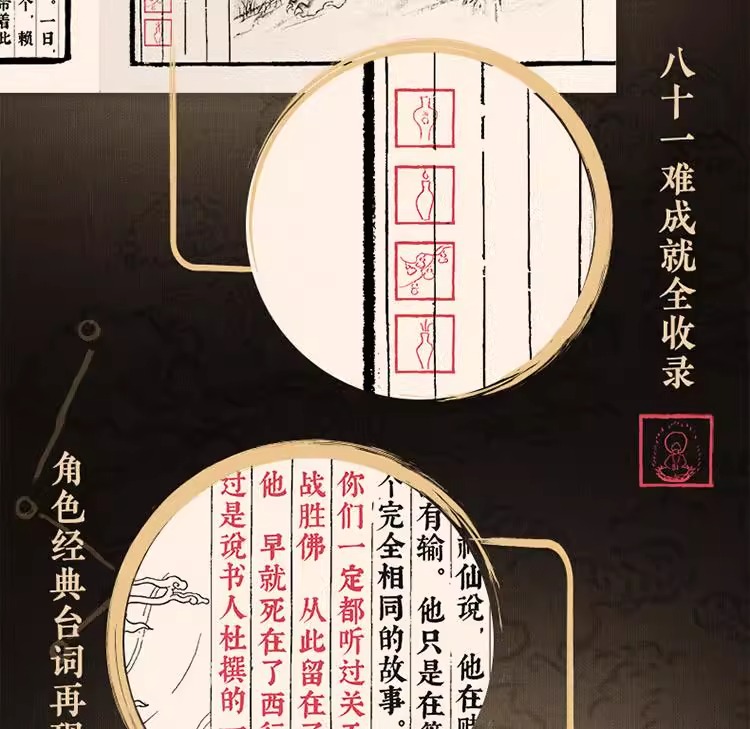 。一日,
个,赖
带着此
八十一难成就全收录
角色经典台词再现
神仙说,他在赌
有输。他只是在等
个完全相同的故事。
你们一定都听过关于
战胜佛 从此留在了
他 早就死在了西行
过是说书人杜撰的一